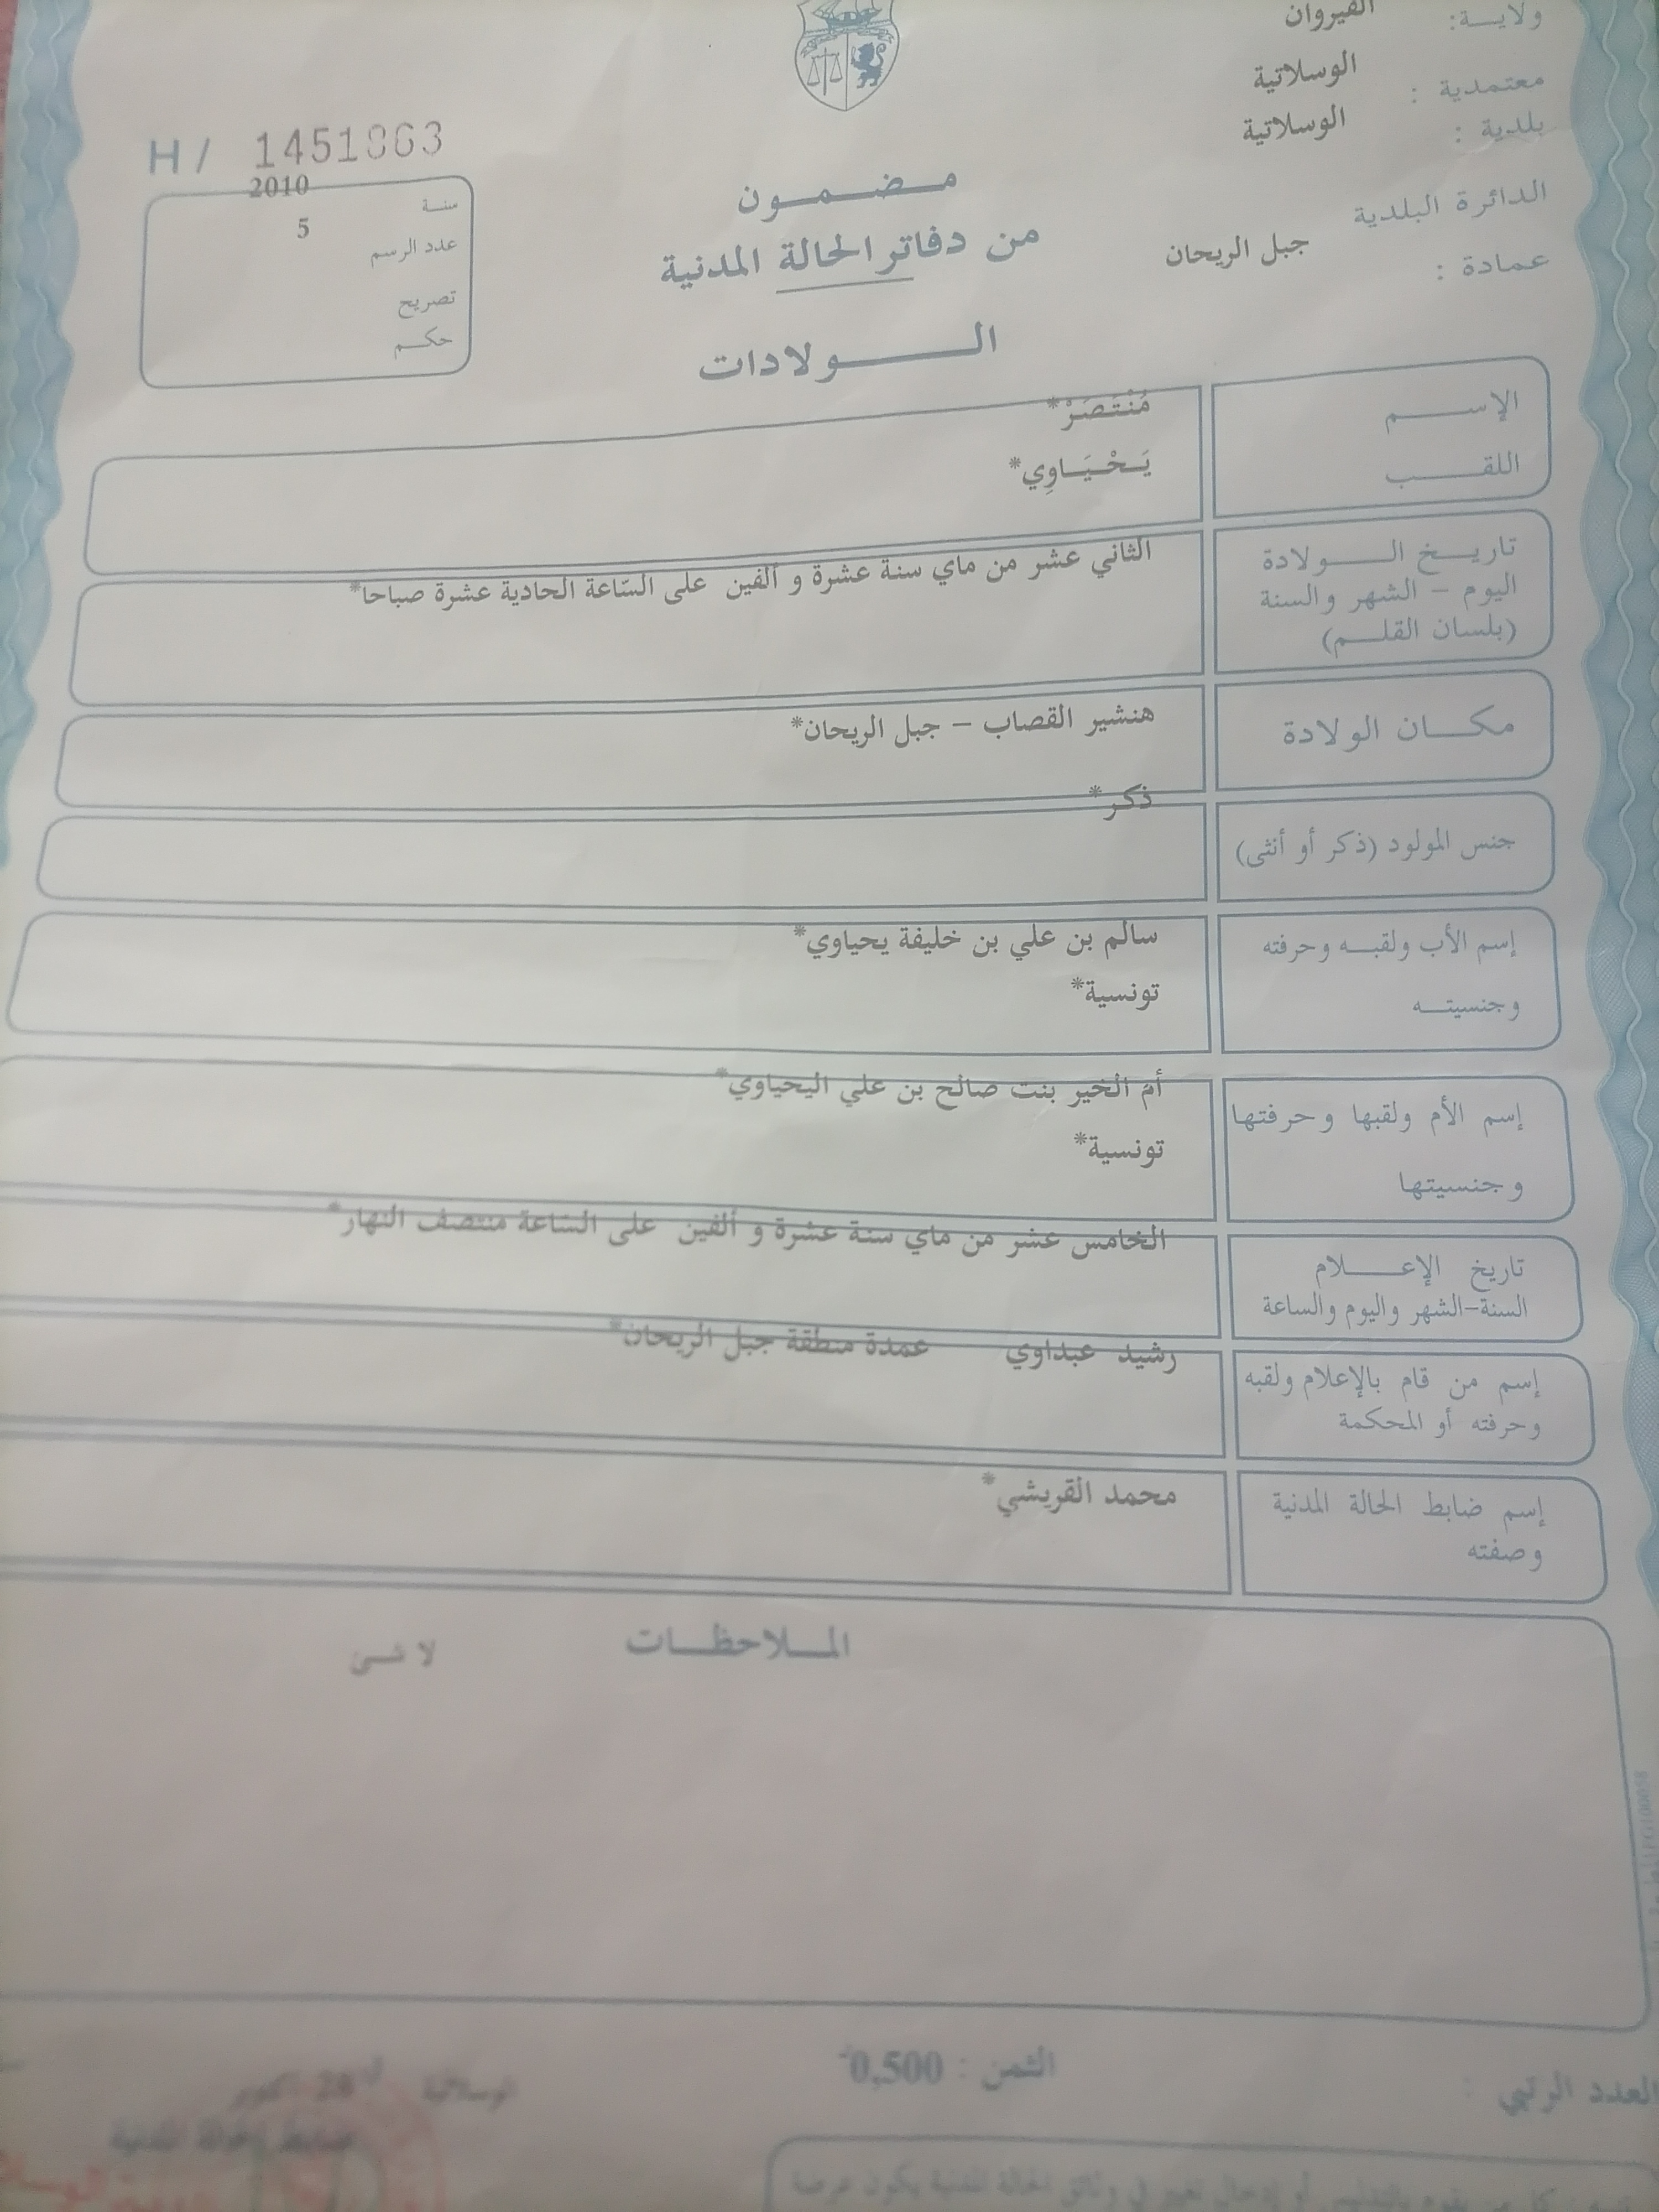 ولايـــة: القيروان
معتمدية : الوسلاتية
بلدية : الوسلاتية
الدائرة البلدية
عمادة : جبل الريحان
مــضــمــون
من دفاتر الحالة المدنية
الــــولادات
H/ 1451863
سنــة 2010
عدد الرسم 5
تصريح
حكــم
الإســــم مُنْتَصَرْ*
اللقــــب يَــحْــيَــاوِي*
تاريــخ الـــــولادة الثاني عشر من ماي سنة عشرة و ألفين على السّاعة الحادية عشرة صباحا*
اليوم – الشهر والسنة
(بلسان القلـــم)
مكـــان الولادة هنشير القصاب – جبل الريحان*
جنس المولود (ذكر أو أنثى) ذكر*
إسم الأب ولقبــه وحرفته سالم بن علي بن خليفة يحياوي*
وجنسيتــه تونسية*
إسم الأم ولقبها وحرفتها أمّ الخير بنت صالح بن علي اليحياوي*
وجنسيتها تونسية*
تاريخ الإعــــلام الخامس عشر من ماي سنة عشرة و ألفين على السّاعة منتصف النهار*
السنة-الشهر واليوم والساعة
إسم من قام بالإعلام ولقبه رشيد عبداوي عمدة منطقة جبل الريحان*
وحرفته أو المحكمة
إسم ضابط الحالة المدنية محمد القريشي*
وصفته
المــلاحظــات لا شــئ
العدد الرتبي :
الثمن : 0,500
الوسلاتية في 28 أكتوبر
ضابط الحالة المدنية